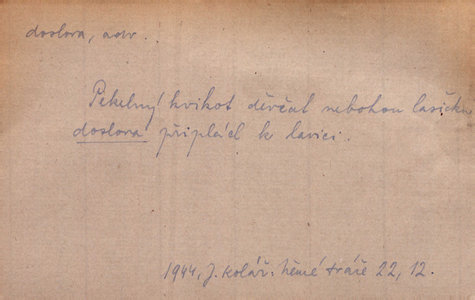 doslova, adv.
Pekelný kvikot děvčat nebohou lasičku
doslova připlácl k lavici.
1944, J. Kolář: Němé tváře 22, 12.